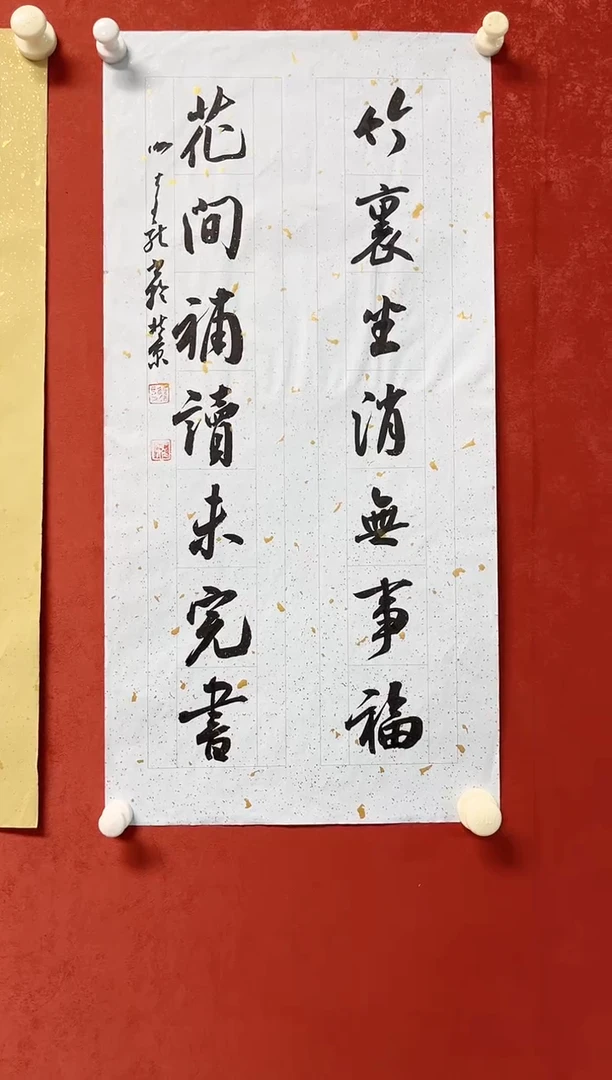 竹裏坐消無事福
花間補讀未完書
北京